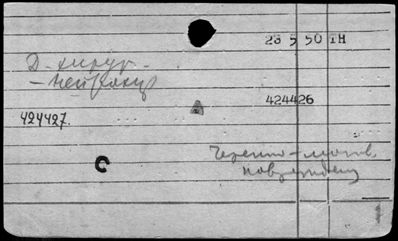 23 5 50 IH
Д-хирур-
-нейрохир
424426
424427.
C
Черепно-мозгов.
повреждену
1